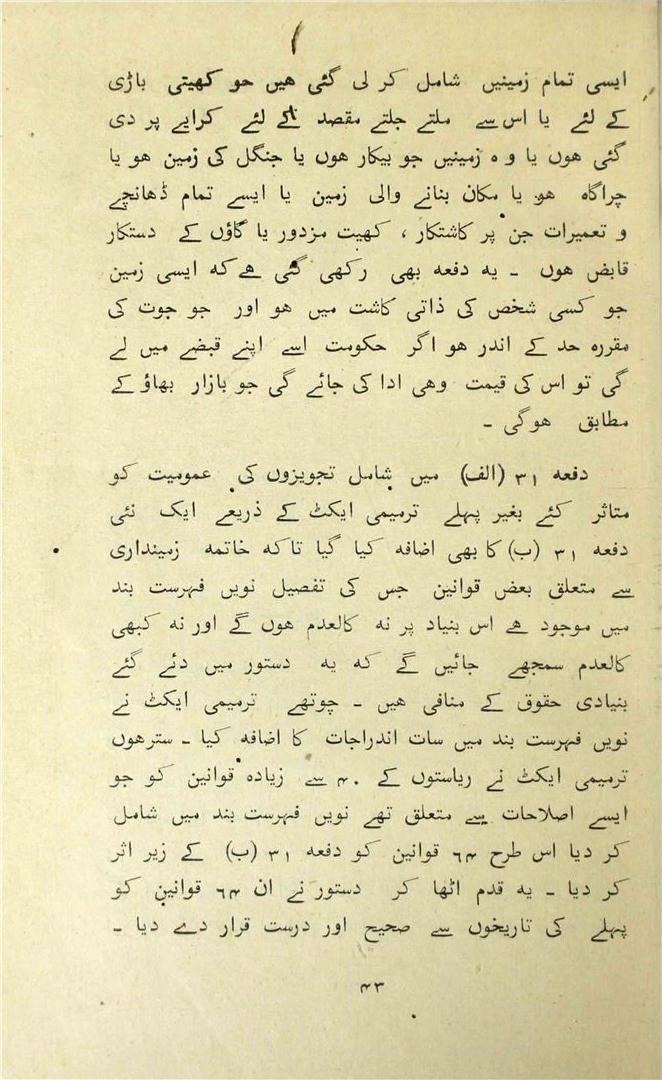 ایسی تمام زمینیں شامل کر لی گئی ھیں جو کھیتی باڑی
کے لئے یا اس سے ملتے جلتے مقصد کے لئے کرایے پر دی
گئی ھوں یا وہ زمینیں جو بیکار ھوں یا جنگل کی زمین ھو یا
چراگاہ ھو یا مکان بنانے والی زمین یا ایسے تمام ڈھانچے
و تعمیرات جن پر کاشتکار ، کھیت مزدور یا گاؤں کے دستکار
قابض ھوں ۔ یہ دفعہ بھی رکھی گئی ھے کہ ایسی زمین
جو کسی شخص کی ذاتی کاشت میں ھو اور جو جوت کی
مقررہ حد کے اندر ھو اگر حکومت اسے اپنے قبضے میں لے
گی تو اس کی قیمت وھی ادا کی جائے گی جو بازار بھاؤ کے
مطابق ھوگی ۔
دفعہ ۳۱ (الف) میں شامل تجویزوں کی عمومیت کو
متاثر کئے بغیر پہلے ترمیمی ایکٹ کے ذریعے ایک نئی
دفعہ ۳۱ (ب) کا بھی اضافہ کیا گیا تاکہ خاتمہ زمینداری
سے متعلق بعض قوانین جس کی تفصیل نویں فہرست بند
میں موجود ھے اس بنیاد پر نہ کالعدم ھوں گے اور نہ کبھی
کالعدم سمجھے جائیں گے کہ یہ دستور میں دئے گئے
بنیادی حقوق کے منافی ھیں ۔ چوتھے ترمیمی ایکٹ نے
نویں فہرست بند میں سات اندراجات کا اضافہ کیا ۔ سترھوں
ترمیمی ایکٹ نے ریاستوں کے ۴۰ سے زیادہ قوانین کو جو
ایسے اصلاحات سے متعلق تھے نویں فہرست بند میں شامل
کر دیا اس طرح ۶۴ قوانین کو دفعہ ۳۱ (ب) کے زیر اثر
کر دیا ۔ یہ قدم اٹھا کر دستور نے ان ۶۴ قوانین کو
پہلے کی تاریخوں سے صحیح اور درست قرار دے دیا ۔
۴۳